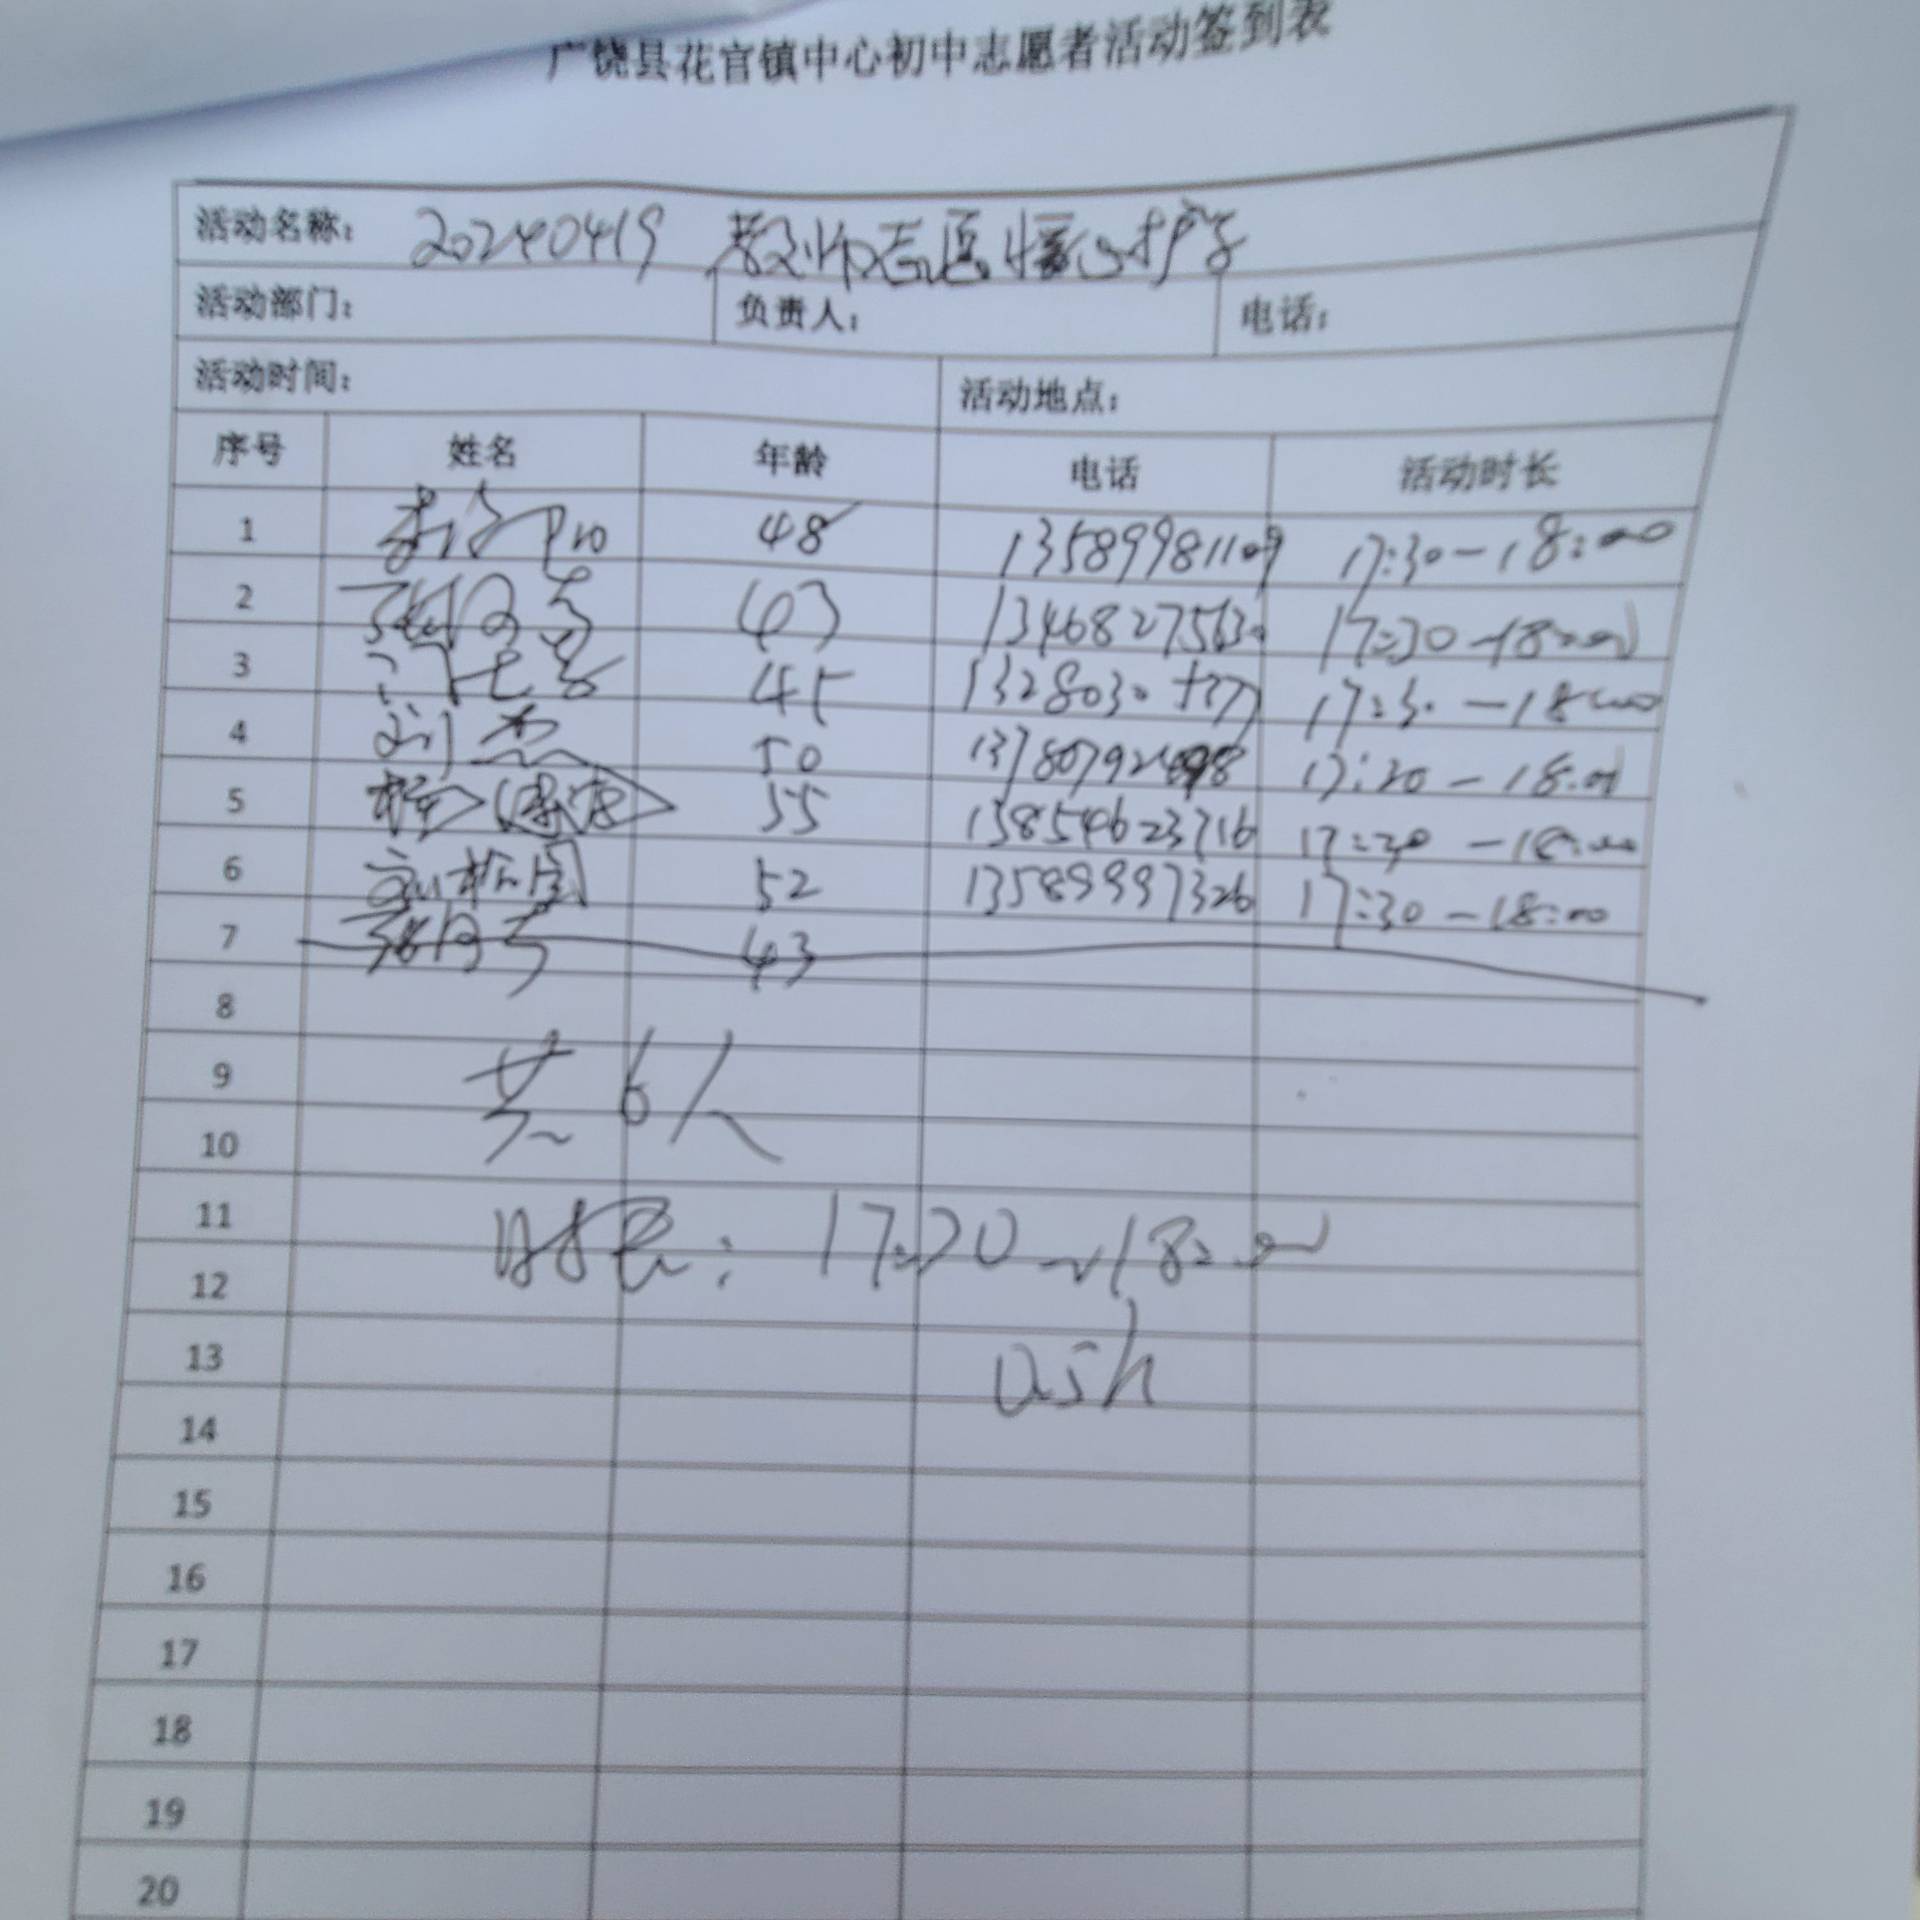 广饶县花官镇中心初中志愿者活动签到表
活动名称： 20240419 教师志愿 护学
活动部门： 负责人： 电话：
活动时间： 活动地点：
序号 姓名 年龄 电话 活动时长
1 48 13589981109 17:30-18:00
2 43 1346827563 17:30-18:00
3 45 1328030 17:30-18:00
4 刘杰 50 17:30-18:00
5 55 13854623716 17:30-18:00
6 52 13589997326 17:30-18:00
7 43
8
9
共6人
10
11
时长： 17:30~18:00
12
13 0.5h
14
15
16
17
18
19
20